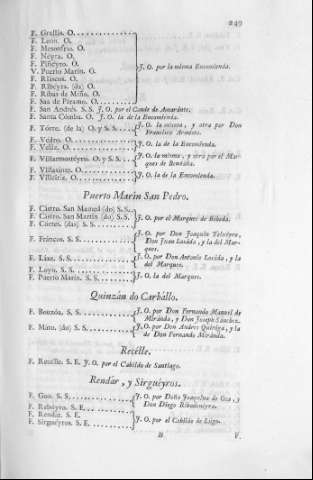 249
F. Grallás. O.
F. Leon. O.
F. Mesonfrio. O.
F. Néyra. O.
F. Piñéyro. O.
V. Puerto Marin. O.
F. Riliscos. O.
F. Ribéyra. (da) O.
F. Ribas de Miño. O.
F. Saa de Páramo. O.
J. O. por la misma Encomienda.
F. San Andrés. S. S. J. O. por el Conde de Amarante.
F. Santa Comba. O. J. O. la de la Encomienda.
F. Torre. (de la) O. y S. S. J. O. la misma, y otra por Don
Francisco Armesto.
F. Vedro. O.
F. Velle. O.
J. O. la de la Encomienda.
F. Villarmostéyro. O. y S. S. J. O. la misma, y otra por el Mar-
ques de Bendaña.
F. Villasinte. O.
F. Villeiriz. O.
J. O. la de la Encomienda.
Puerto Marin San Pedro.
F. Castro. San Mamed (do) S. S.
F. Castro. San Martin (do) S. S.
F. Cortes. (das) S. S.
J. O. por el Marques de Bóveda.
F. Fráncos. S. S. J. O. por Don Joaquin Teixeyro,
Don Juan Losada, y la del Mar-
ques.
F. Líaz. S. S. J. O. por Don Antonio Losada, y la
del Marques.
F. Loyo. S. S.
F. Puerto Marin. S. S.
J. O. la del Marques.
Quinzán do Carbállo.
F. Bouzóa. S. S. J. O. por Don Fernando Manuel de
Miránda, y Don Joseph Sánchez.
F. Mato. (do) S. S. J. O. por Don Andres Quiróga, y la
de Don Fernando Miránda.
Recélle.
F. Recélle. S. E. J. O. por el Cabildo de Santiago.
Rendár, y Sirguéyros.
F. Goo. S. S. J. O. por Doña Joaquina de Goa, y
Don Diego Ribadeneyra.
F. Rubéyro. S. E.
F. Rendár. S. E.
F. Sirguéyros. S. E.
J. O. por el Cabildo de Lugo.
V.